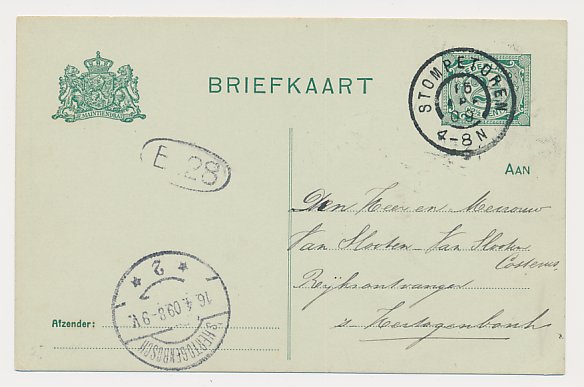 BRIEFKAART
JE MAINTIENDRAI
STOMPETOREN
15
4
09
4-8 N
2
E 28
AAN
Den Heer en Mevrouw
Van Slooten - Van Slooten
Costerus
Rijksontvanger
's Hertogenbosch
* 2 *
16.4.09.8-9V.
'S HERTOGENBOSCH
Afzender: